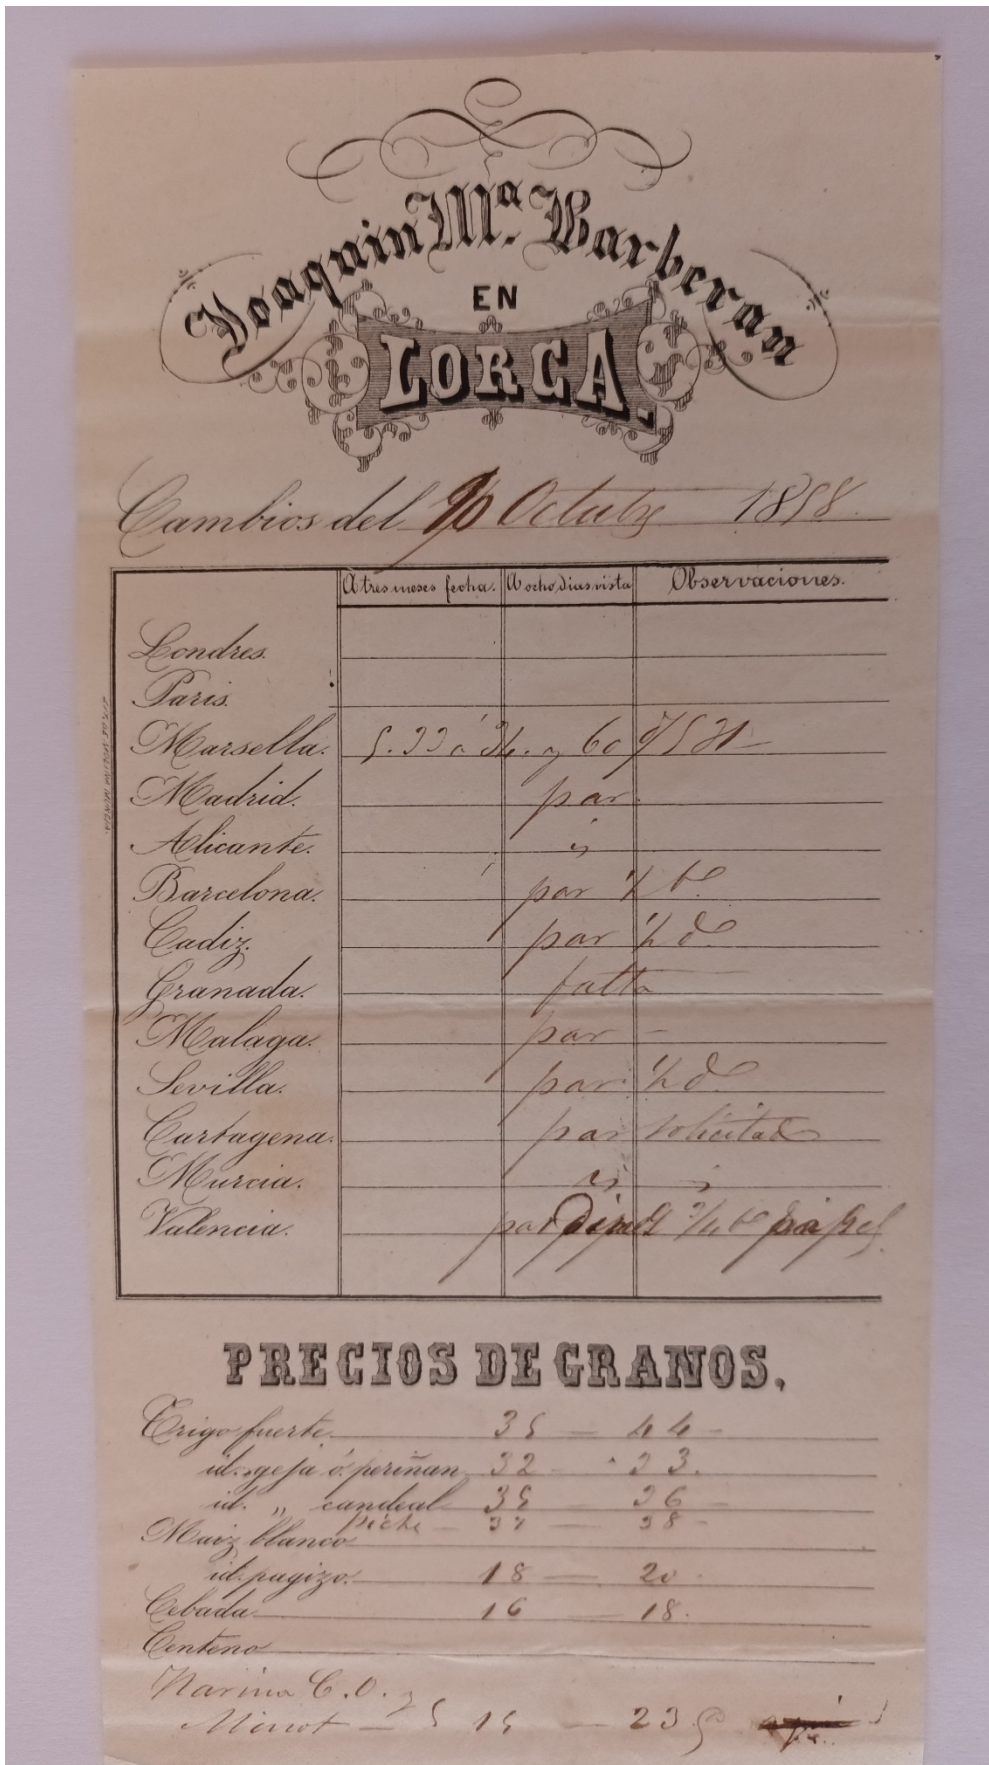 Joaquin Mª. Barberan
EN
LORCA.
Cambios del Octubre 1858.
A tres meses fecha. A ocho dias vista Observaciones.
Londres.
Paris.
Marsella. 5.33 á 34. y 60
Madrid. par.
Alicante.
Barcelona. par ½
Cadiz. par ½ d
Granada. falta
Malaga. par -
Sevilla. par ½ d
Cartagena. par solicitado
Murcia.
Valencia. par ¾ papel
PRECIOS DE GRANOS.
Trigo fuerte. 35 — 44 -
id. geja ó periñan 32 - 33.
id. „ candeal 35 — 36 -
piche - 37 — 38 -
Maiz blanco
id. pagizo. 18 — 20 -
Cebada 16 — 18.
Centeno
Harina C.O. y
— 15 — 23